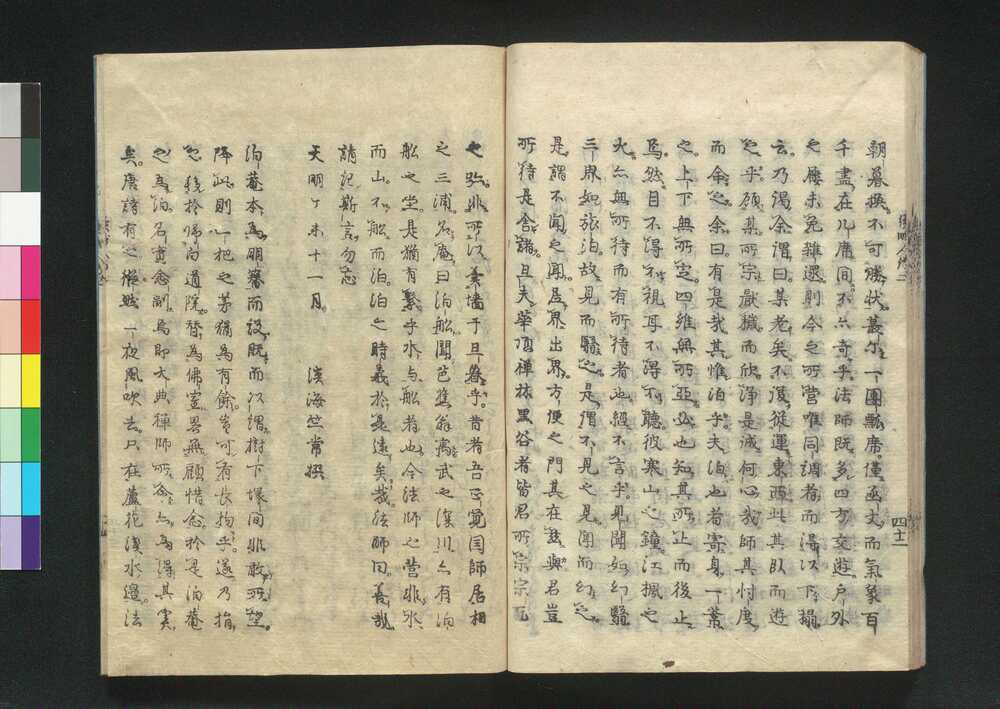 朝暮換不可勝状蕞尓一團瓢席僅函丈而氣象百
千盡在几席間不亦奇乎法師既多四方交遊戸外
之屨未免雑遝則今之所營唯同調者而得以下榻
云乃謁余謂曰某老矣不復從運東西此其臥而遊
之乎願某所宗厭穢而欣浄是誠何心哉師其忖度
而余之余曰有是哉其惟泊乎夫泊也者寄身一葦
之上下無所定四維無所亞必也知其所止而後止
焉然目不得不視耳不得不聽彼寒山之鐘江楓之
火亦無所待而有所待者也經不言乎見聞如幻翳
三界如旅泊故見而翳之是謂不見之見聞而幻之
是謂不聞之聞居界出界方便之門其在茲與君豈
所待是舎諸且夫華頂禅林黒谷者皆君所宗宗元
四十二
之弥非所以羹墻于旦暮乎昔者吾正覚国師居相
之三浦名庵曰泊舩聞芭蕉翁寓武之深川亦有泊
舩之堂是猶有繋乎水与舩者也今法師之營非水
而山不舩而泊泊之時義於是遠矣哉法師曰善哉
請記斯言勿忘
天明丁未十一月 淡海竺常撰
泊菴本為明窓而設既而以謂樹下塚間非敢所望
降此則一把之茅猶為有餘豈可有長物乎遂乃捐
之移於帰白道院替為佛室畧無顧惜念於是泊菴
之為泊名實愈副焉即大典禅師所命亦為得其実
矣唐詩有之縦然一夜風吹去只在蘆花浅水邊法